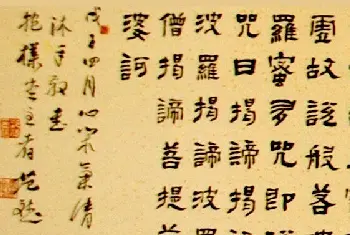 虛故說般若
羅蜜多咒即
咒曰揭諦揭
波羅揭諦波羅
僧揭諦菩提
婆訶
戊子四月心 氣清
沐手敬書
抱樸堂主